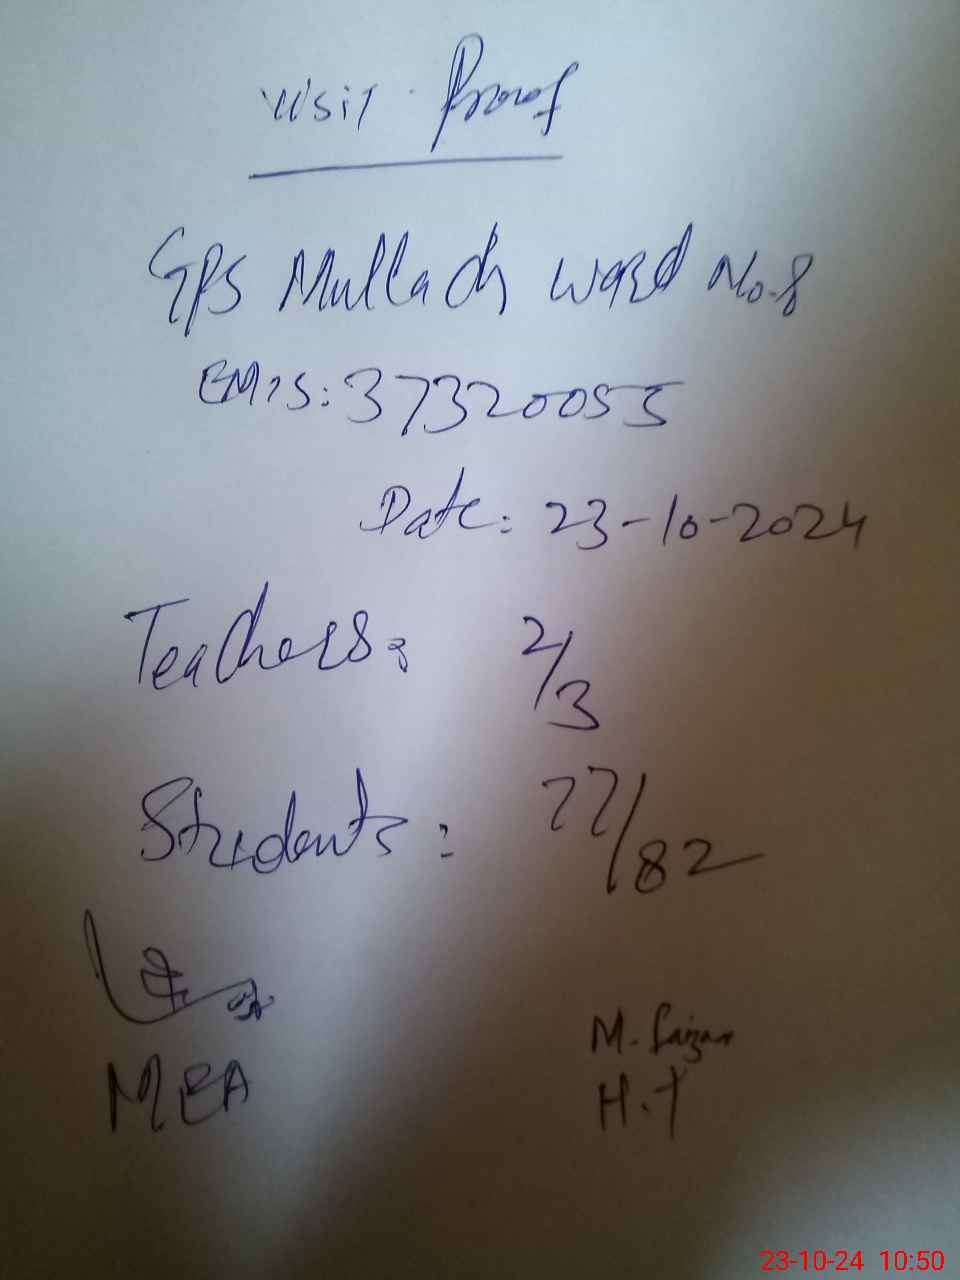 Visit Proof
GPS Mullach ward No.8
EMIS: 37320055
Date: 23-10-2024
Teachers: 2/3
Students: 77/82
MEA
M. Faizan
H.T
23-10-24 10:50